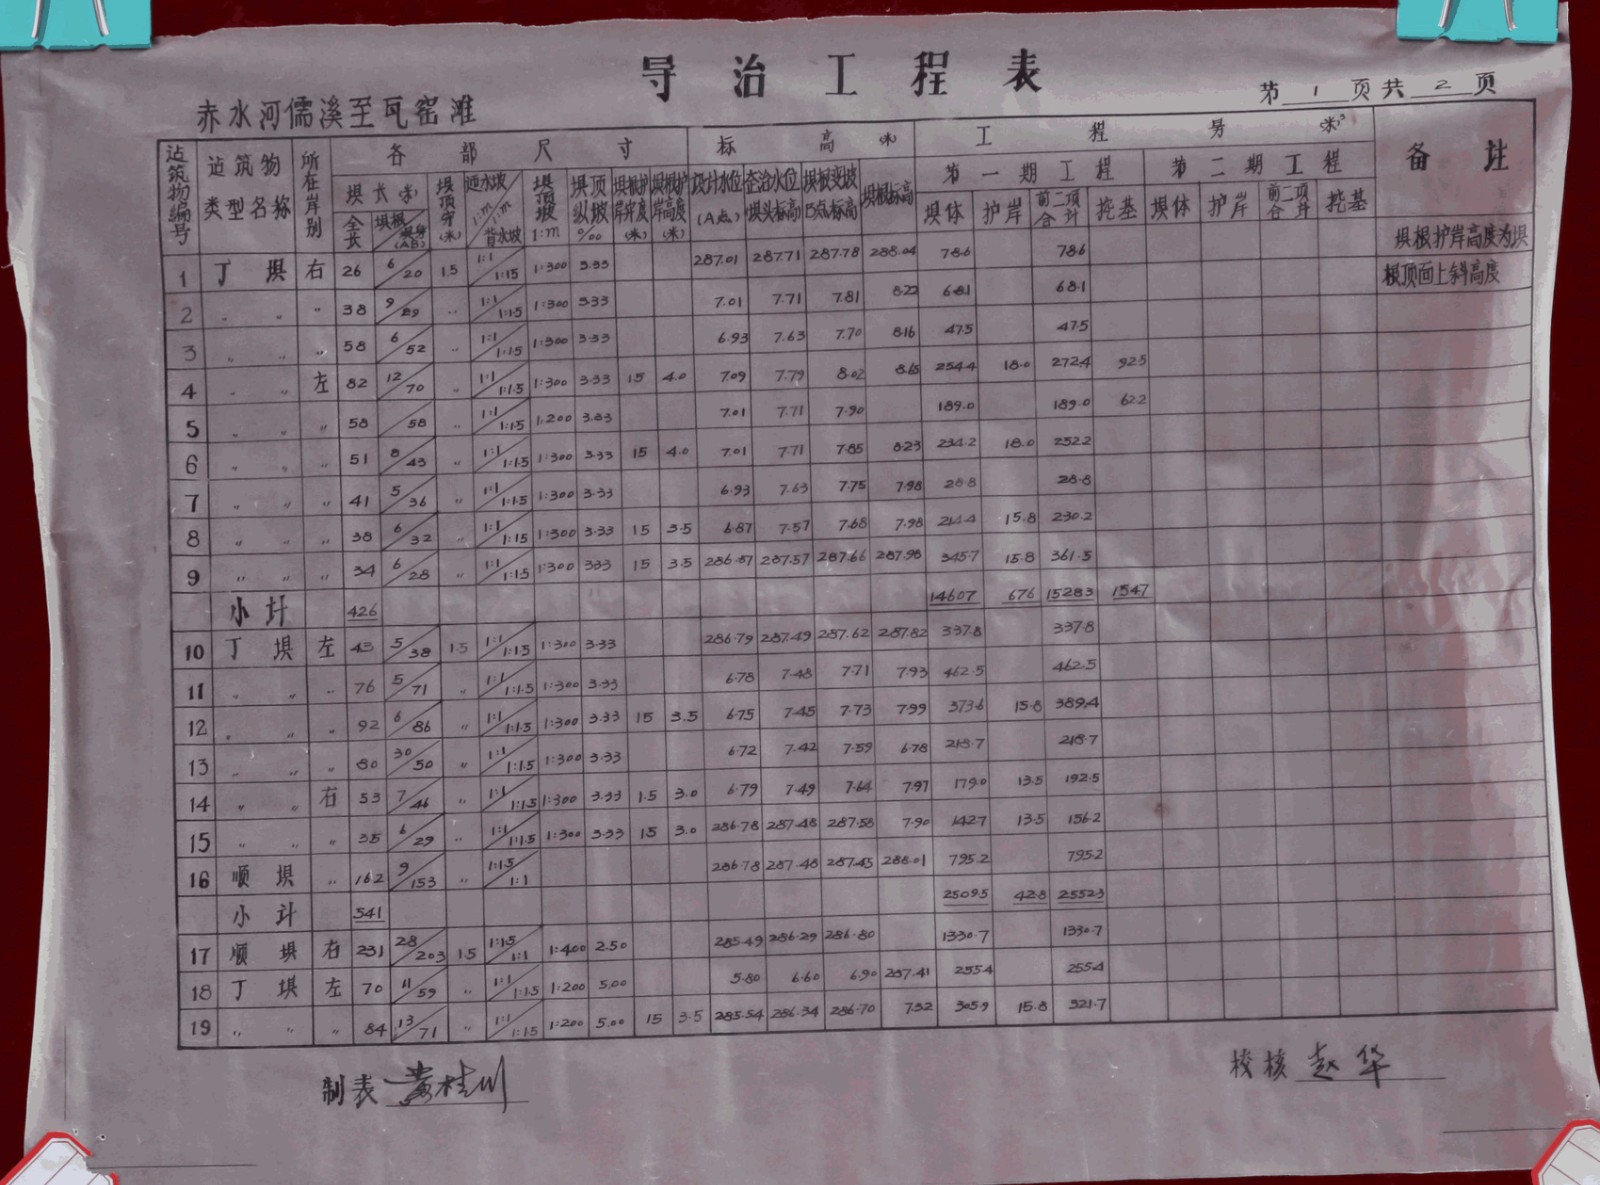 导治工程表
赤水河儒溪至瓦窑滩
第 1 页共 2 页
造筑物编号 造筑物类型名称 所在岸别 各部尺寸 标高(米) 工程号 米³ 备注
坝长(米) 坝顶宽(米) 迎水坡1:m 背水坡1:m 坝顶坡1:m 坝顶纵坡‰ 坝根护岸宽度(米) 坝根护岸高度(米) 设计水位(A点) 整治水位坝头标高 坝根变坡B点标高 坝根标高 第一期工程 第二期工程
全长 坝根 坝体 护岸 前二项合计 挖基 坝体 护岸 前二项合计 挖基
坝根护岸高度为坝
根顶面上斜高度
1 丁坝 右 26 6/20 1.5 1:1/1:1.5 1:300 3.33 287.01 287.71 287.78 288.04 78.6 78.6
2 〃 〃 〃 38 9/29 〃 1:1/1:1.5 1:300 3.33 7.01 7.71 7.81 8.22 68.1 68.1
3 〃 〃 〃 58 6/52 〃 1:1/1:1.5 1:300 3.33 6.93 7.63 7.70 8.16 47.5 47.5
4 〃 〃 左 82 12/70 〃 1:1/1:1.5 1:300 3.33 15 4.0 7.09 7.79 8.02 8.65 254.4 18.0 272.4 92.5
5 〃 〃 〃 58 /58 〃 1:1/1:1.5 1:200 3.83 7.01 7.71 7.90 189.0 189.0 62.2
6 〃 〃 〃 51 8/43 〃 1:1/1:1.5 1:300 3.33 15 4.0 7.01 7.71 7.85 8.23 234.2 18.0 252.2
7 〃 〃 〃 41 5/36 〃 1:1/1:1.5 1:300 3.33 6.93 7.63 7.75 7.98 28.8 28.8
8 〃 〃 〃 38 6/32 〃 1:1/1:1.5 1:300 3.33 15 3.5 6.87 7.57 7.68 7.98 214.4 15.8 230.2
9 〃 〃 〃 34 6/28 〃 1:1/1:1.5 1:300 3.33 15 3.5 286.87 287.57 287.66 287.98 345.7 15.8 361.5
小计 426 1460.7 67.6 1528.3 154.7
10 丁坝 左 43 5/38 1.5 1:1/1:1.5 1:300 3.33 286.79 287.49 287.62 287.82 337.8 337.8
11 〃 〃 〃 76 5/71 〃 1:1/1:1.5 1:300 3.33 6.78 7.48 7.71 7.93 462.5 462.5
12 〃 〃 〃 92 6/86 〃 1:1/1:1.5 1:300 3.33 15 3.5 6.75 7.45 7.73 7.99 373.6 15.8 389.4
13 〃 〃 〃 80 30/50 〃 1:1/1:1.5 1:300 3.33 6.72 7.42 7.59 6.78 218.7 218.7
14 〃 〃 右 53 7/46 〃 1:1/1:1.5 1:300 3.33 1.5 3.0 6.79 7.49 7.64 7.97 179.0 13.5 192.5
15 〃 〃 〃 35 6/29 〃 1:1/1:1.5 1:300 3.33 15 3.0 286.78 287.48 287.58 7.90 142.7 13.5 156.2
16 顺坝 〃 162 9/153 〃 1:1.5/1:1 286.78 287.48 287.45 288.01 795.2 795.2
小计 541 2509.5 42.8 2552.3
17 顺坝 右 231 28/203 1.5 1:1.5/1:1 1:400 2.50 285.49 286.29 286.80 1330.7 1330.7
18 丁坝 左 70 11/59 〃 1:1/1:1.5 1:200 5.00 5.80 6.60 6.90 287.41 255.4 255.4
19 〃 〃 〃 84 13/71 〃 1:1/1:1.5 1:200 5.00 15 3.5 285.54 286.34 286.70 7.32 305.9 15.8 321.7
制表 黄桂川
校核 赵华